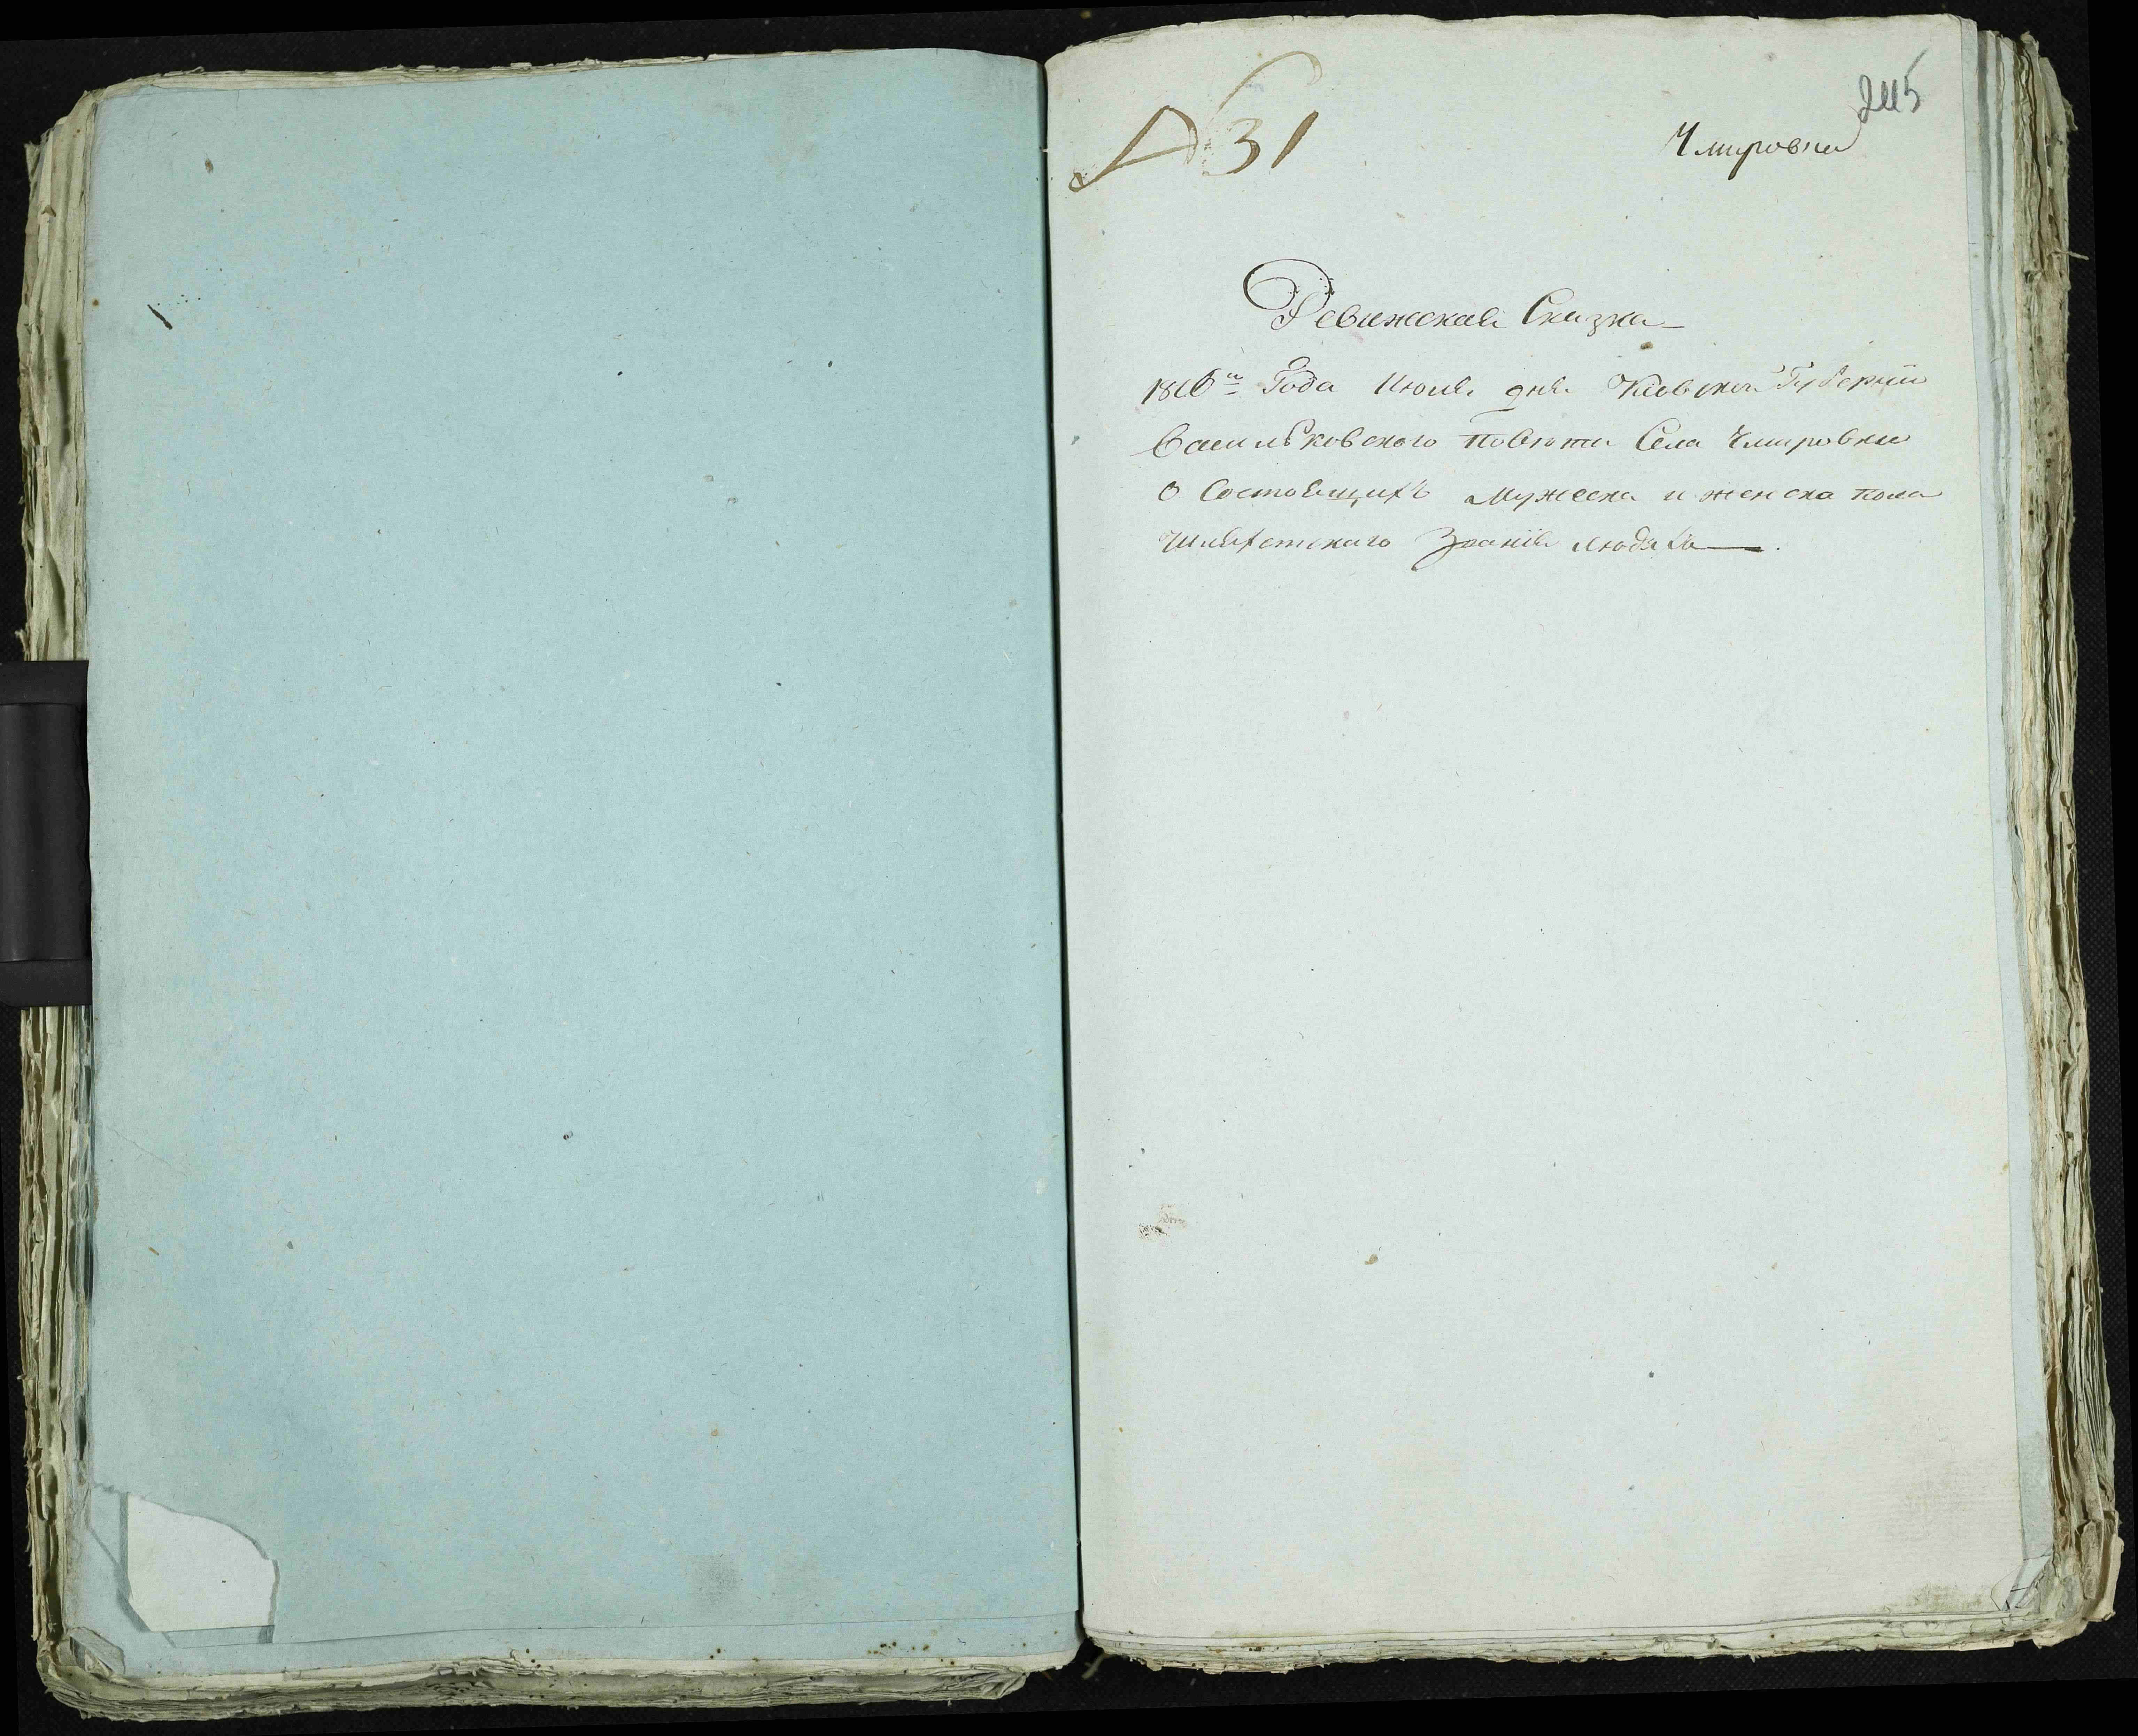 245
№ 31
Чмировка
Ревижская Сказка
1816го Года Июля дня Киевской Губернии
Васильковского Повета Села Чмировки
О Состоящихъ Мужеска и женска пола
Шляхетского Звания людяхъ.